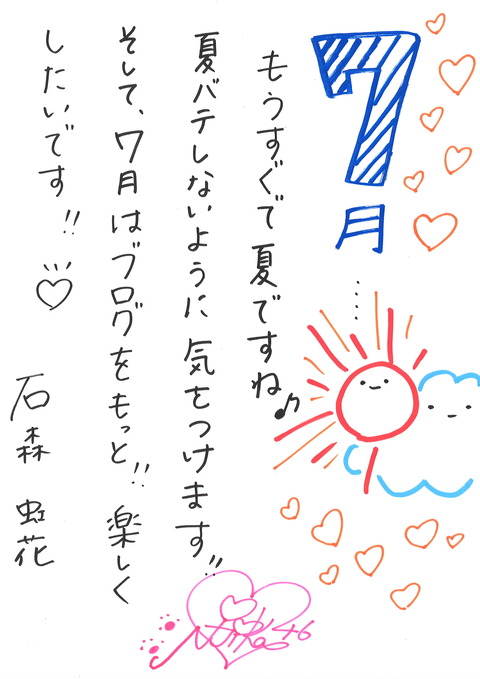 7月
もうすぐで夏ですね♪
夏バテしないように気をつけます!!
そして、7月はブログをもっと!!楽しく
したいです!!♡
石森 虹花
Nijika 46